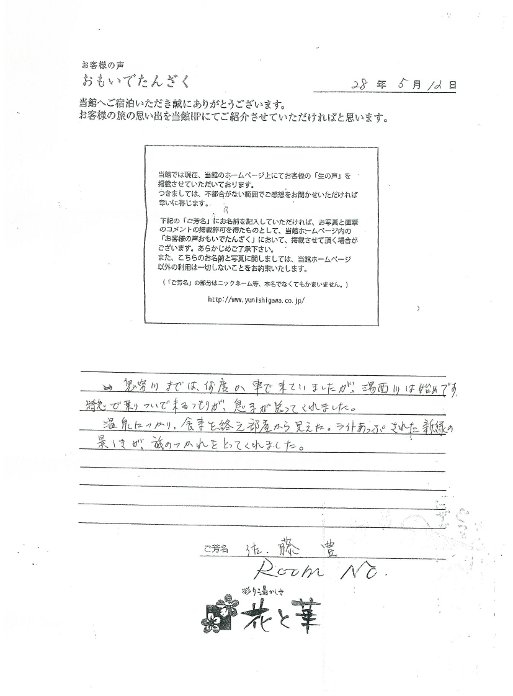 お客様の声
おもいでたんざく
28 年 5 月 12 日
当館へご宿泊いただき誠にありがとうございます。
お客様の旅の思い出を当館HPにてご紹介させていただければと思います。
当館では現在、当館のホームページ上にてお客様の「生の声」を
掲載させていただいております。
つきましては、不都合がない範囲でご感想をお聞かせいただければ
幸いに存じます。
下記の「ご芳名」にお名前を記入していただければ、お写真と直筆
のコメントの掲載許可を得たものとして、当館ホームページ内の
「お客様の声おもいでたんざく」において、掲載させて頂く場合が
ございます。あらかじめご了承下さい。
また、こちらのお名前と写真に関しましては、当館ホームページ
以外の利用は一切しないことをお約束いたします。
(「ご芳名」の部分はニックネーム等、本名でなくてもかまいません。)
http://www.yunishigawa.co.jp/
鬼怒川までは、何度か車で来ていましたが、湯西川は始めてです
で乗りついで来るつもりが、息子が送ってくれました。
温泉につかり、食事を終え部屋から見えた。ライトあっぷされた新緑の
美しさが、旅のつかれをとってくれました。
ご芳名 佐藤 豊
Room No.
彩り湯かしき
花と華